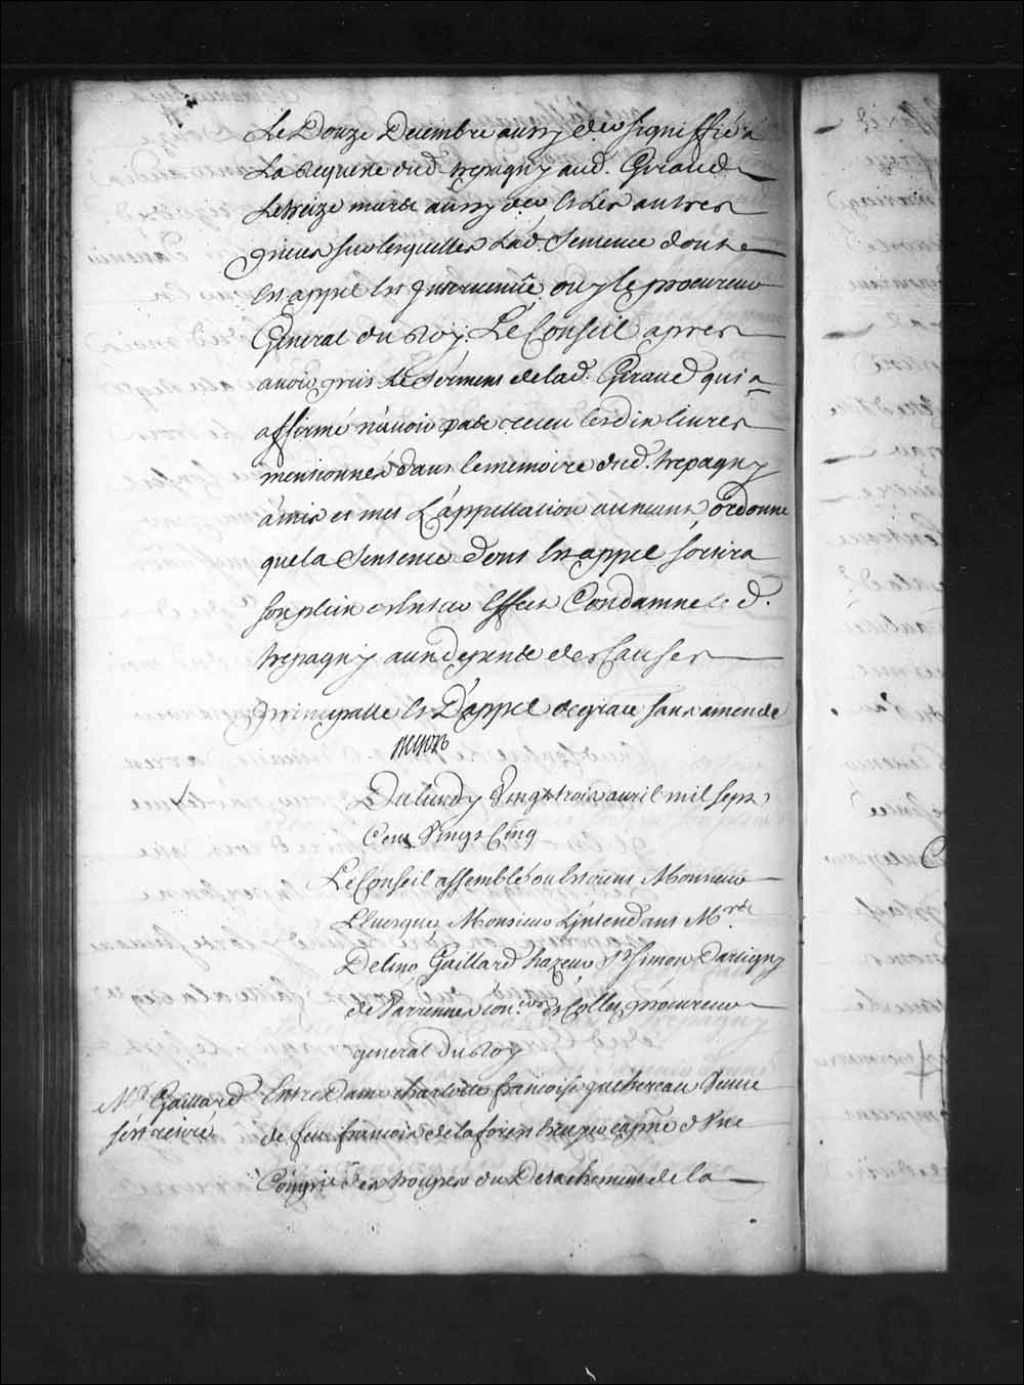 Le Douze Decembre aussy dер signiffié a
La Requeste dud. trepagny aud. Giraud
Le treize mars aussy der Et Les autres
pieces sur lesquelles Lad. Sentence dont
Est appel Est Intervenüe ouy le procureur
General du Roy. Le Conseil apres
avoir pris le serment de lad. Giraud qui a
affirmé n'avoir pas receu les dix livres
mentionnés dans le memoire dud. trepagny
à mis et met L'appellation au neant, ordonne
que la Sentence dont Est appel sortira
son plein et Entier Effect Condamne le d.
trepagny aux depens des Causes
principalle Et D'appel de grace sans amende
Du lundy Vingt trois avril mil sept
Cent Vingt Cinq
Le Conseil assemblé ou Estoient Monsieur
L'Evesque, Monsieur L'intendant Mrs.
Delino Gaillard hazeur St Simon Dartigny
de Varennes coners. Et Collet procureur
general du Roy
Mr Gaillard
s'est retiré
Entre Dame charlotte francoise Juchereau Veuve
de feu francois de la forest vivant capne d'Une
Compnie des troupes du Detachement de la